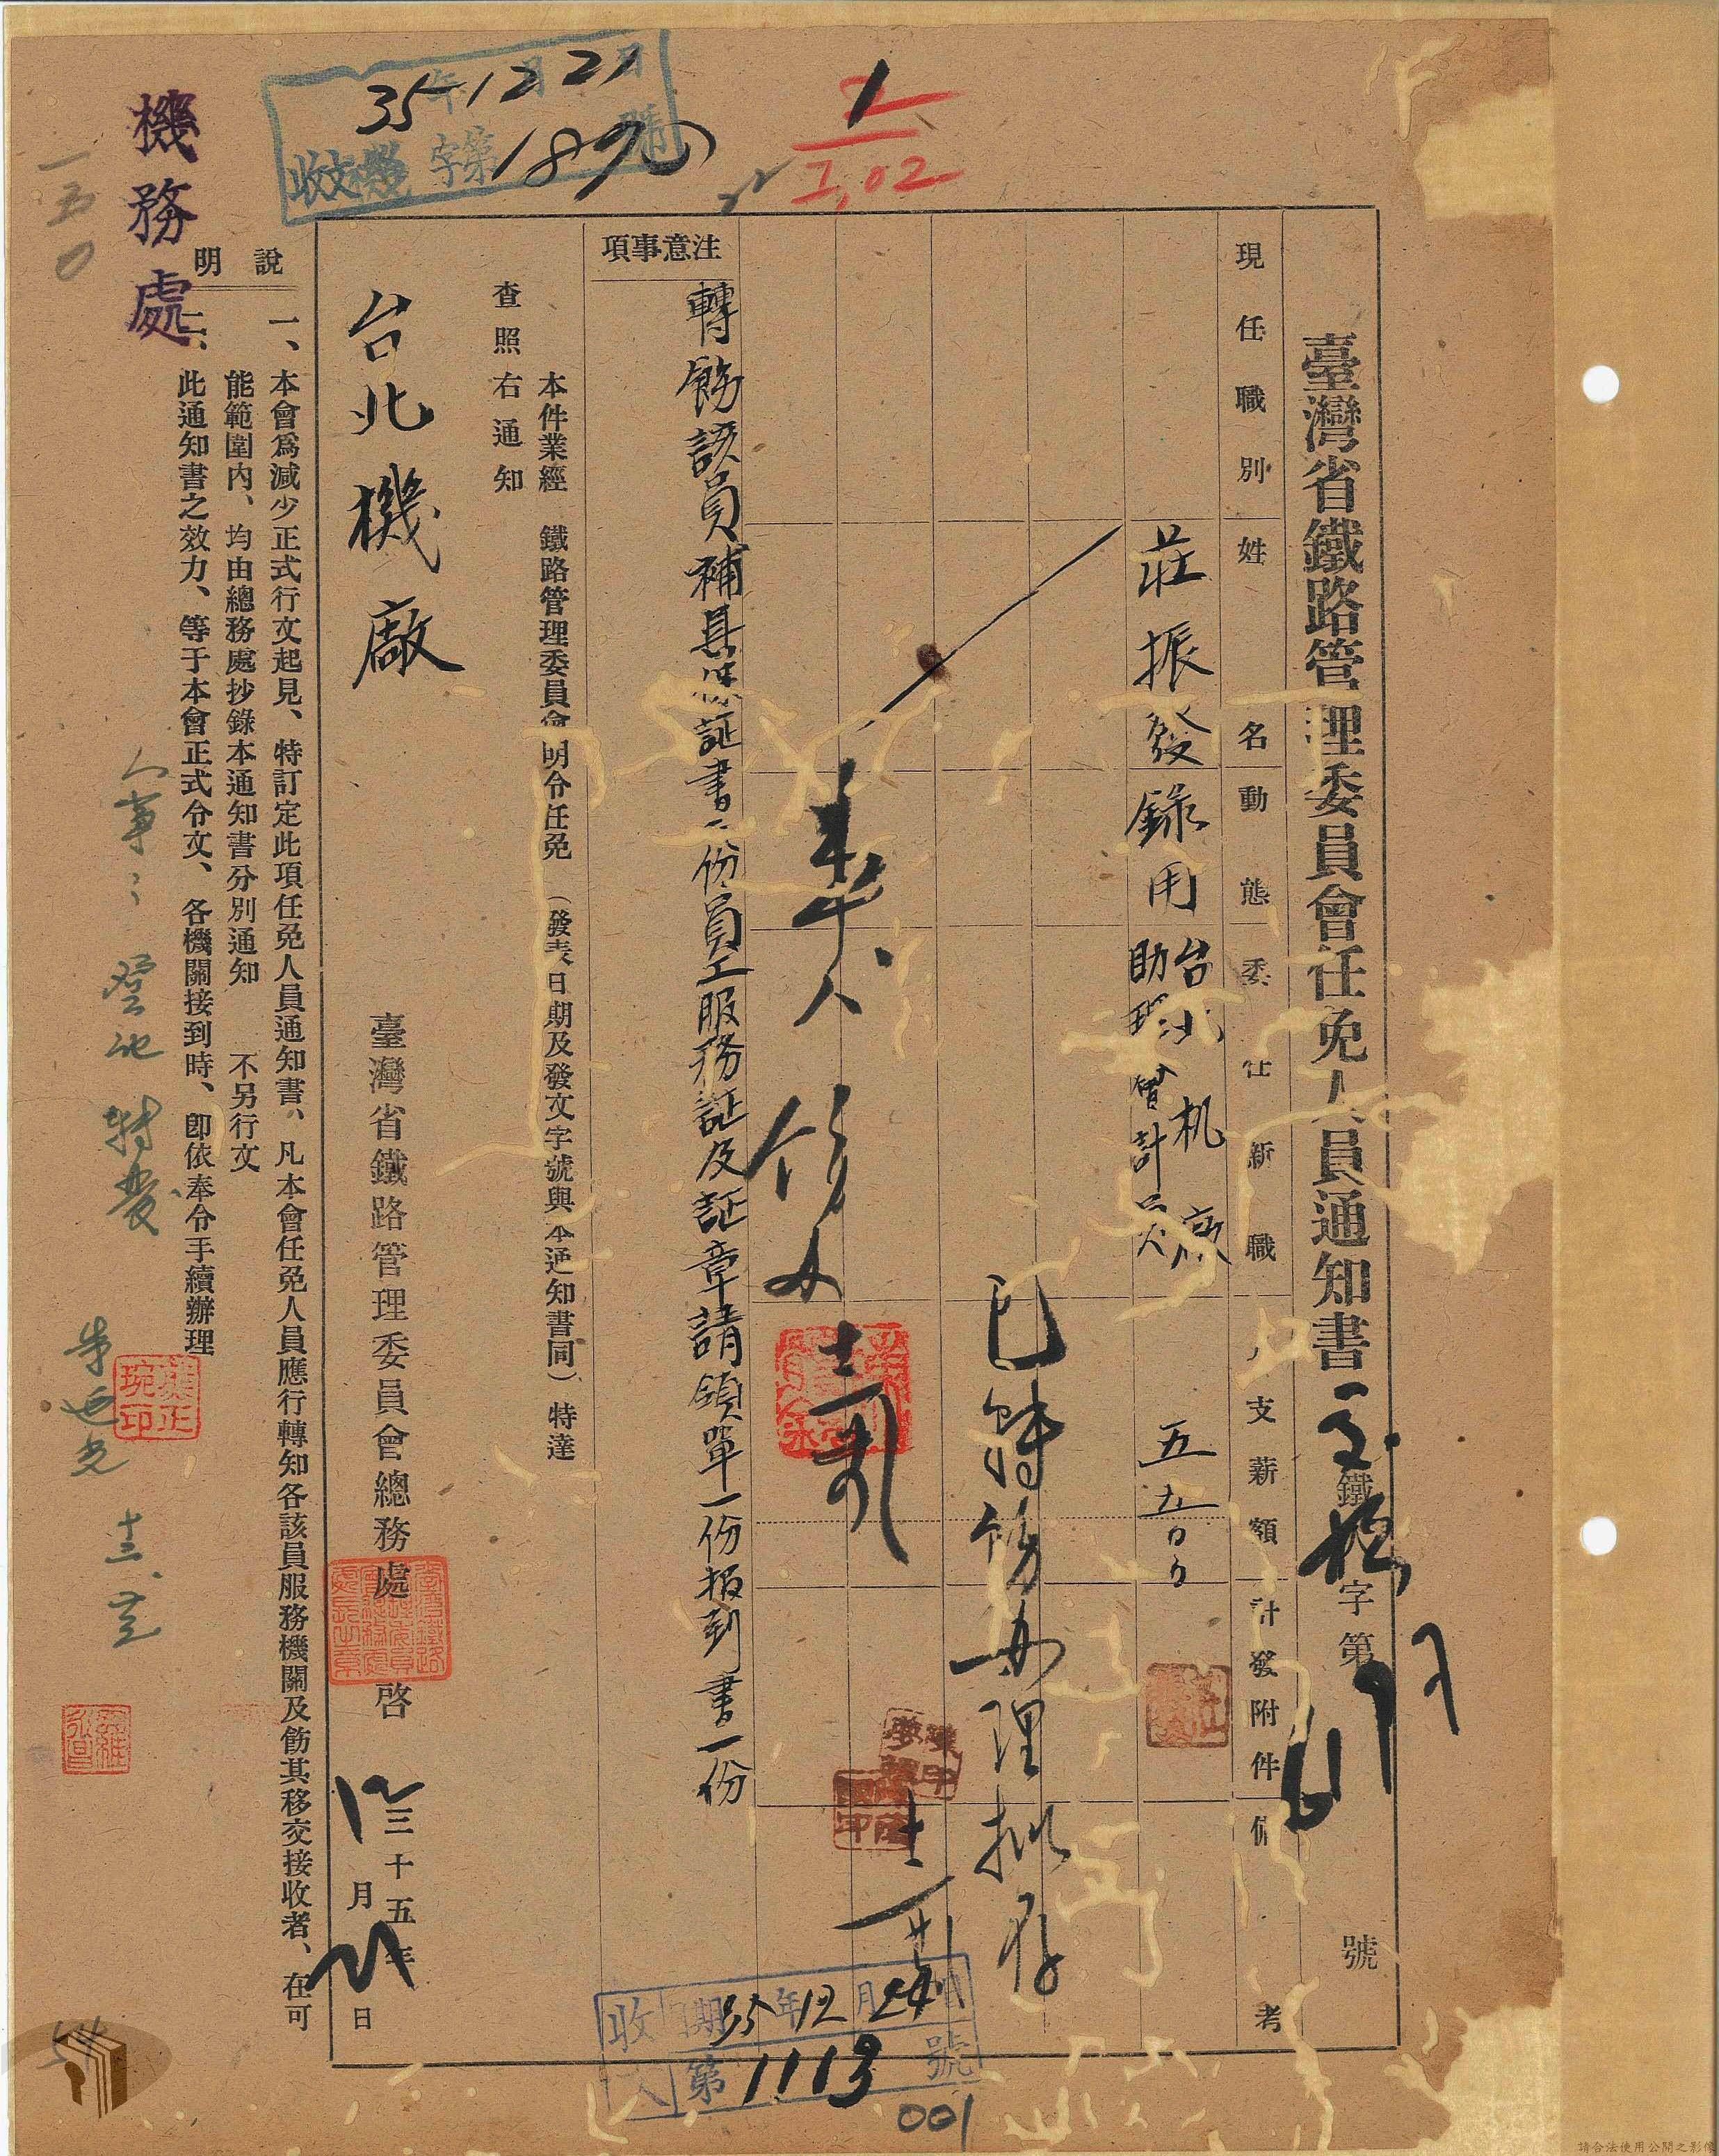 臺灣省鐵路管理委員會任免人員通知書
鐵
字第
號
現任職別
姓名
動態
委任新職
支薪額
計發附件
備考
莊振發
錄用
台北机廠
助理會計員
五五〇〇
已轉飭辦理擬存
注意事項
轉飭該員補具保証書一份員工服務証及証章請領單一份报到書一份
本件業經 鐵路管理委員會明令任免 (發表日期及發文字號與本通知書同) 特達
查照右通知
台北機廠
臺灣省鐵路管理委員會總務處 啓
三十五年
月
日
說明
一、本會爲減少正式行文起見、特訂定此項任免人員通知書、凡本會任免人員應行轉知各該員服務機關及飭其移交接收者、在可
能範圍內、均由總務處抄錄本通知書分別通知 不另行文
二、此通知書之效力、等于本會正式令文、各機關接到時、卽依奉令手續辦理
機務處
一五0
35年12月21日
收文機字第1890號
1
1,02
人事:登記轉發
收入
日期35年12月24日
第1113號
001
請合法使用公開之影像